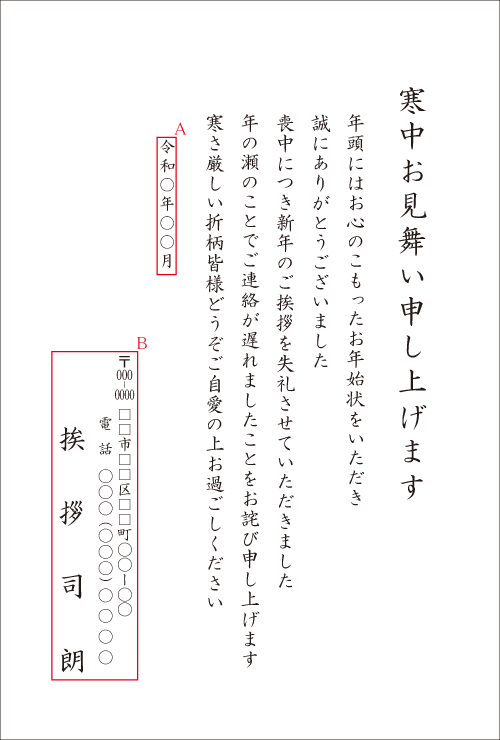 寒中お見舞い申し上げます
年頭にはお心のこもったお年始状をいただき
誠にありがとうございました
喪中につき新年のご挨拶を失礼させていただきました
年の瀬のことでご連絡が遅れましたことをお詫び申し上げます
寒さ厳しい折柄皆様どうぞご自愛の上お過ごしください
A
令和〇年〇〇月
B
〒000-0000 □□市□□区□□町〇〇ー〇〇
電話 〇〇〇(〇〇〇)〇〇〇〇
挨拶司朗